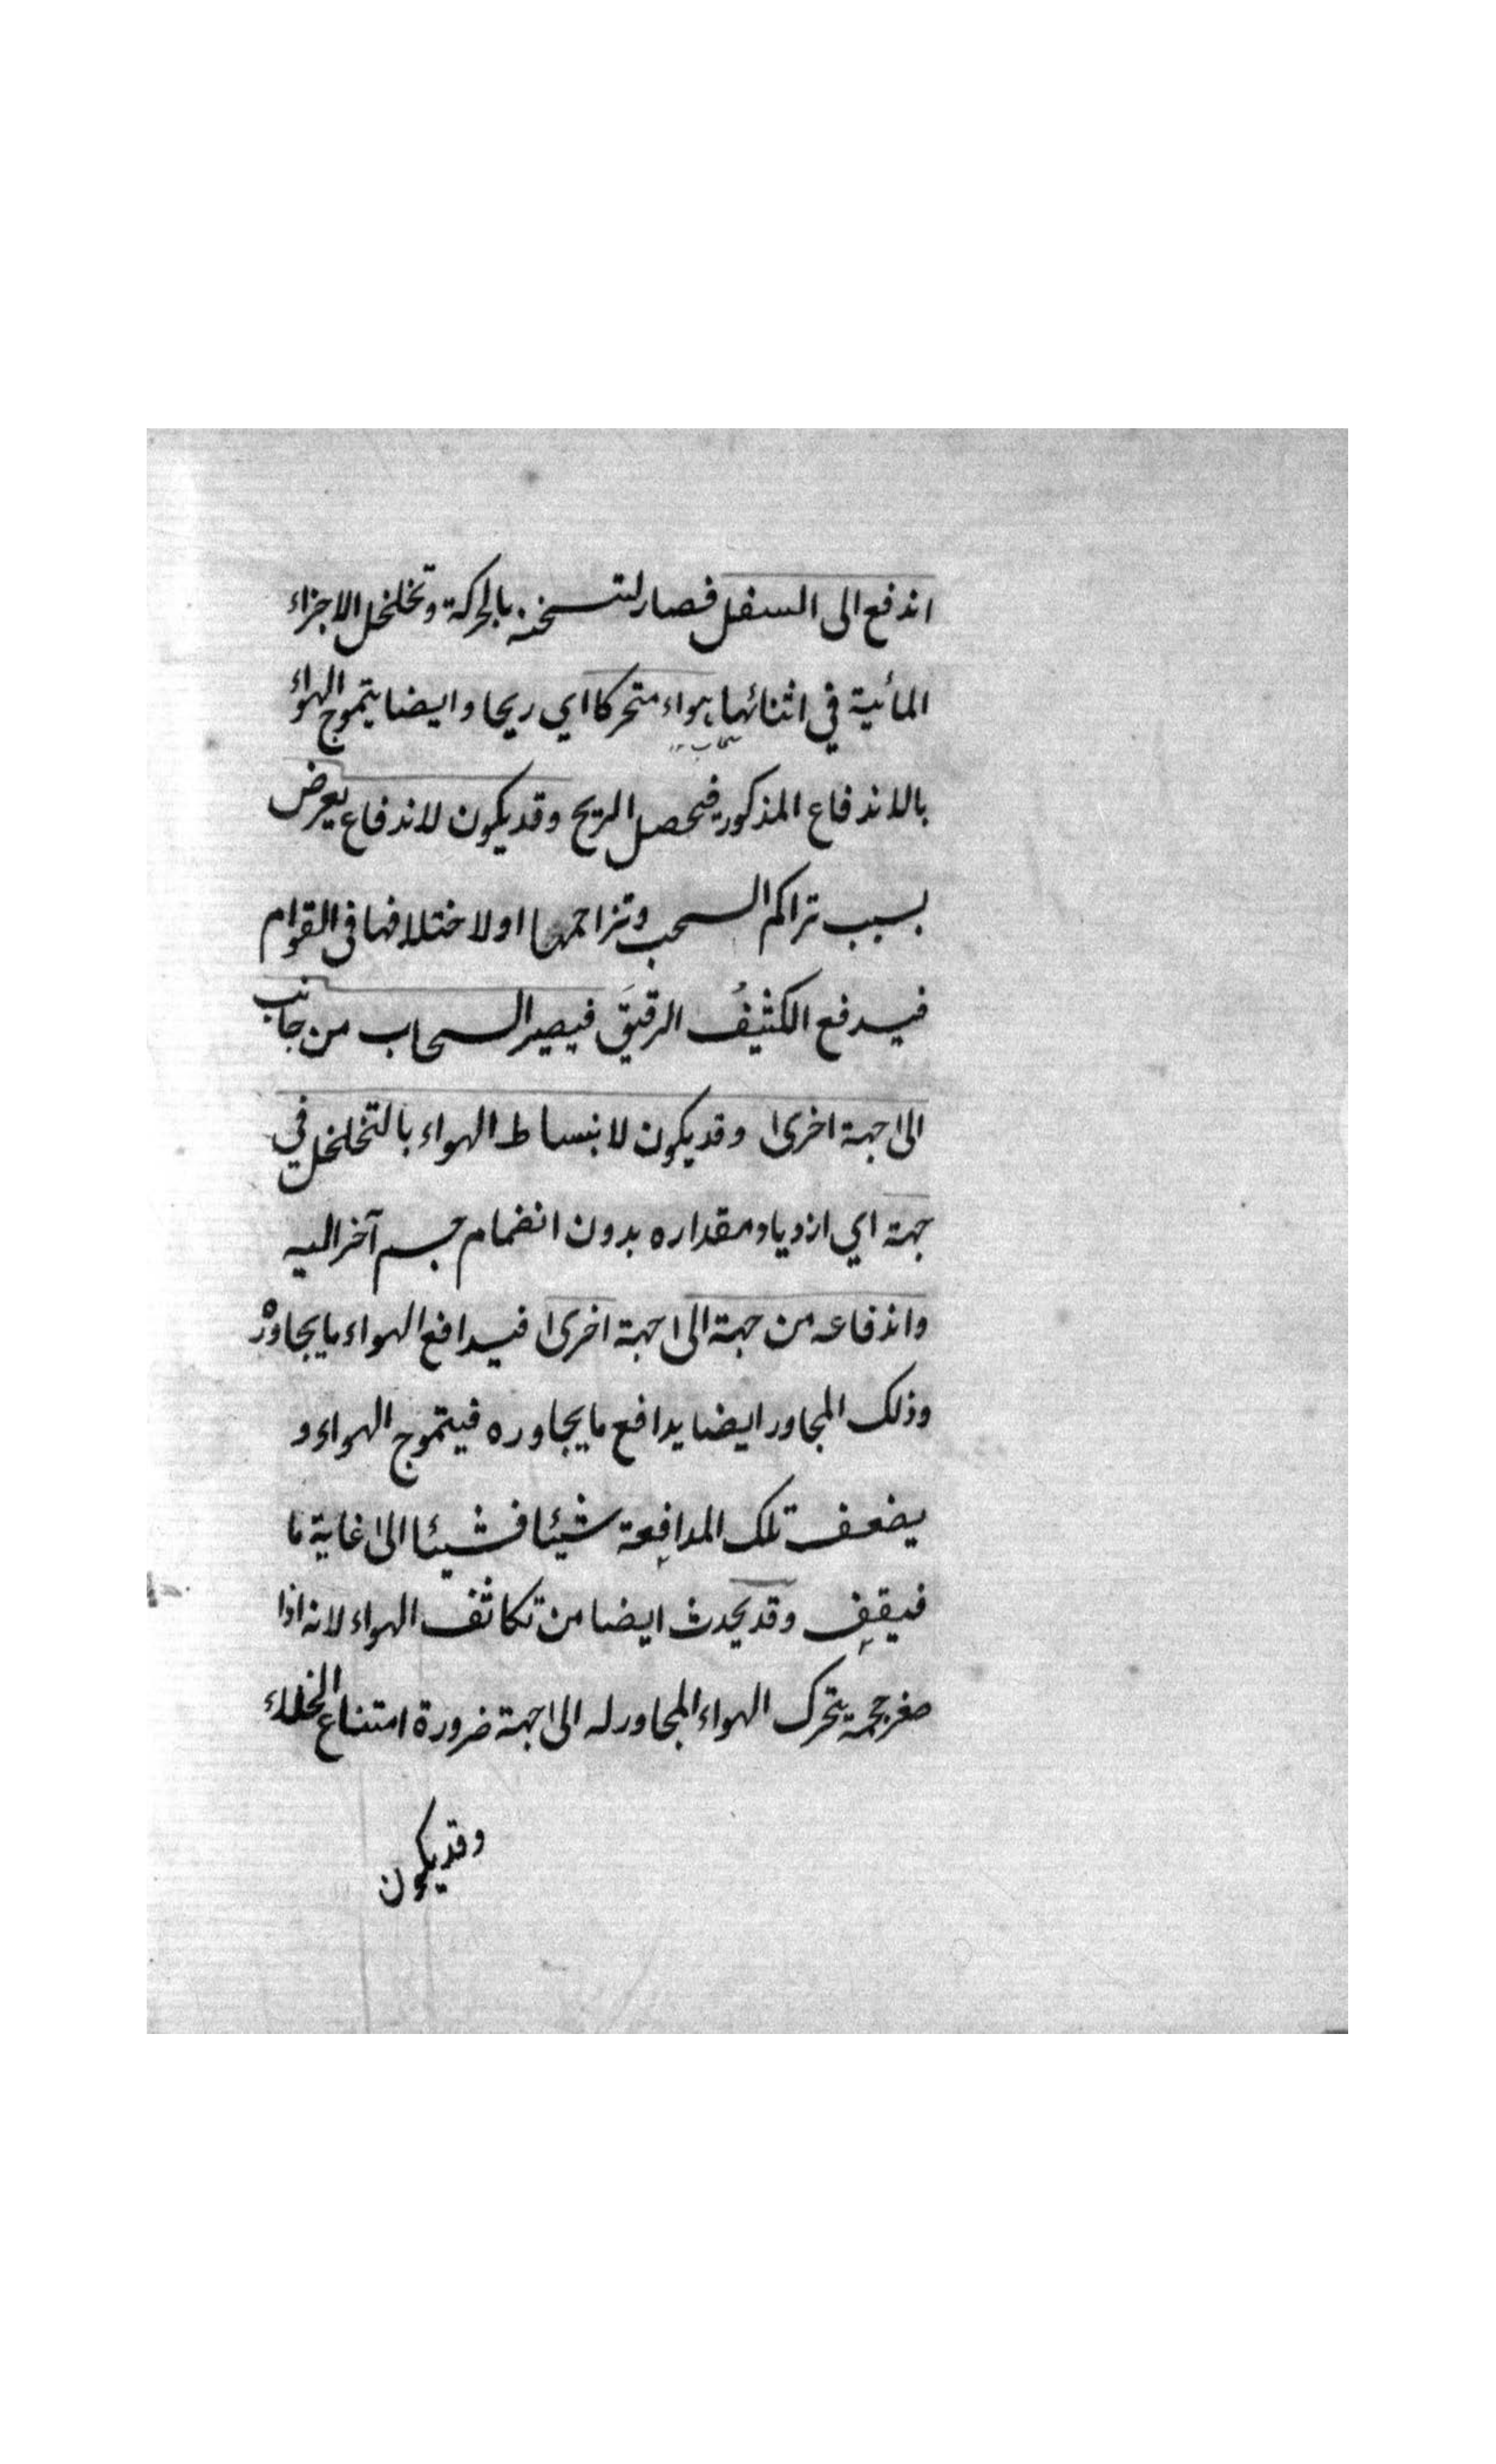 اندفع الى السفل فصار لتسخنه بالحركة وتخلخل الاجزاء
المائية في اثنائها هواء متحركا اي ريحا وايضا يتموج الهواء
بالاندفاع المذكور فيحصل الريح وقد يكون لاندفاع يعرض
بسبب تراكم السحب وتزاحمها او لاختلافها في القوام
فيدفع الكثيفُ الرقيقَ فيصير السحاب من جانب
الى جهة اخرى وقد يكون لانبساط الهواء بالتخلخل في
جهة اي ازدياد مقداره بدون انضمام جسم آخر اليه
واندفاعه من جهة الى جهة اخرى فيدافع الهواء ما يجاوره
وذلك المجاور ايضا يدافع ما يجاوره فيتموج الهواء و
يضعف تلك المدافعة شيئا فشيئا الى غاية ما
فيقف وقد يحدث ايضا من تكاثف الهواء لانه اذا
صغر حجمه يتحرك الهواء المجاور له الى جهة ضرورة امتناع الخلاء
وقد يكون